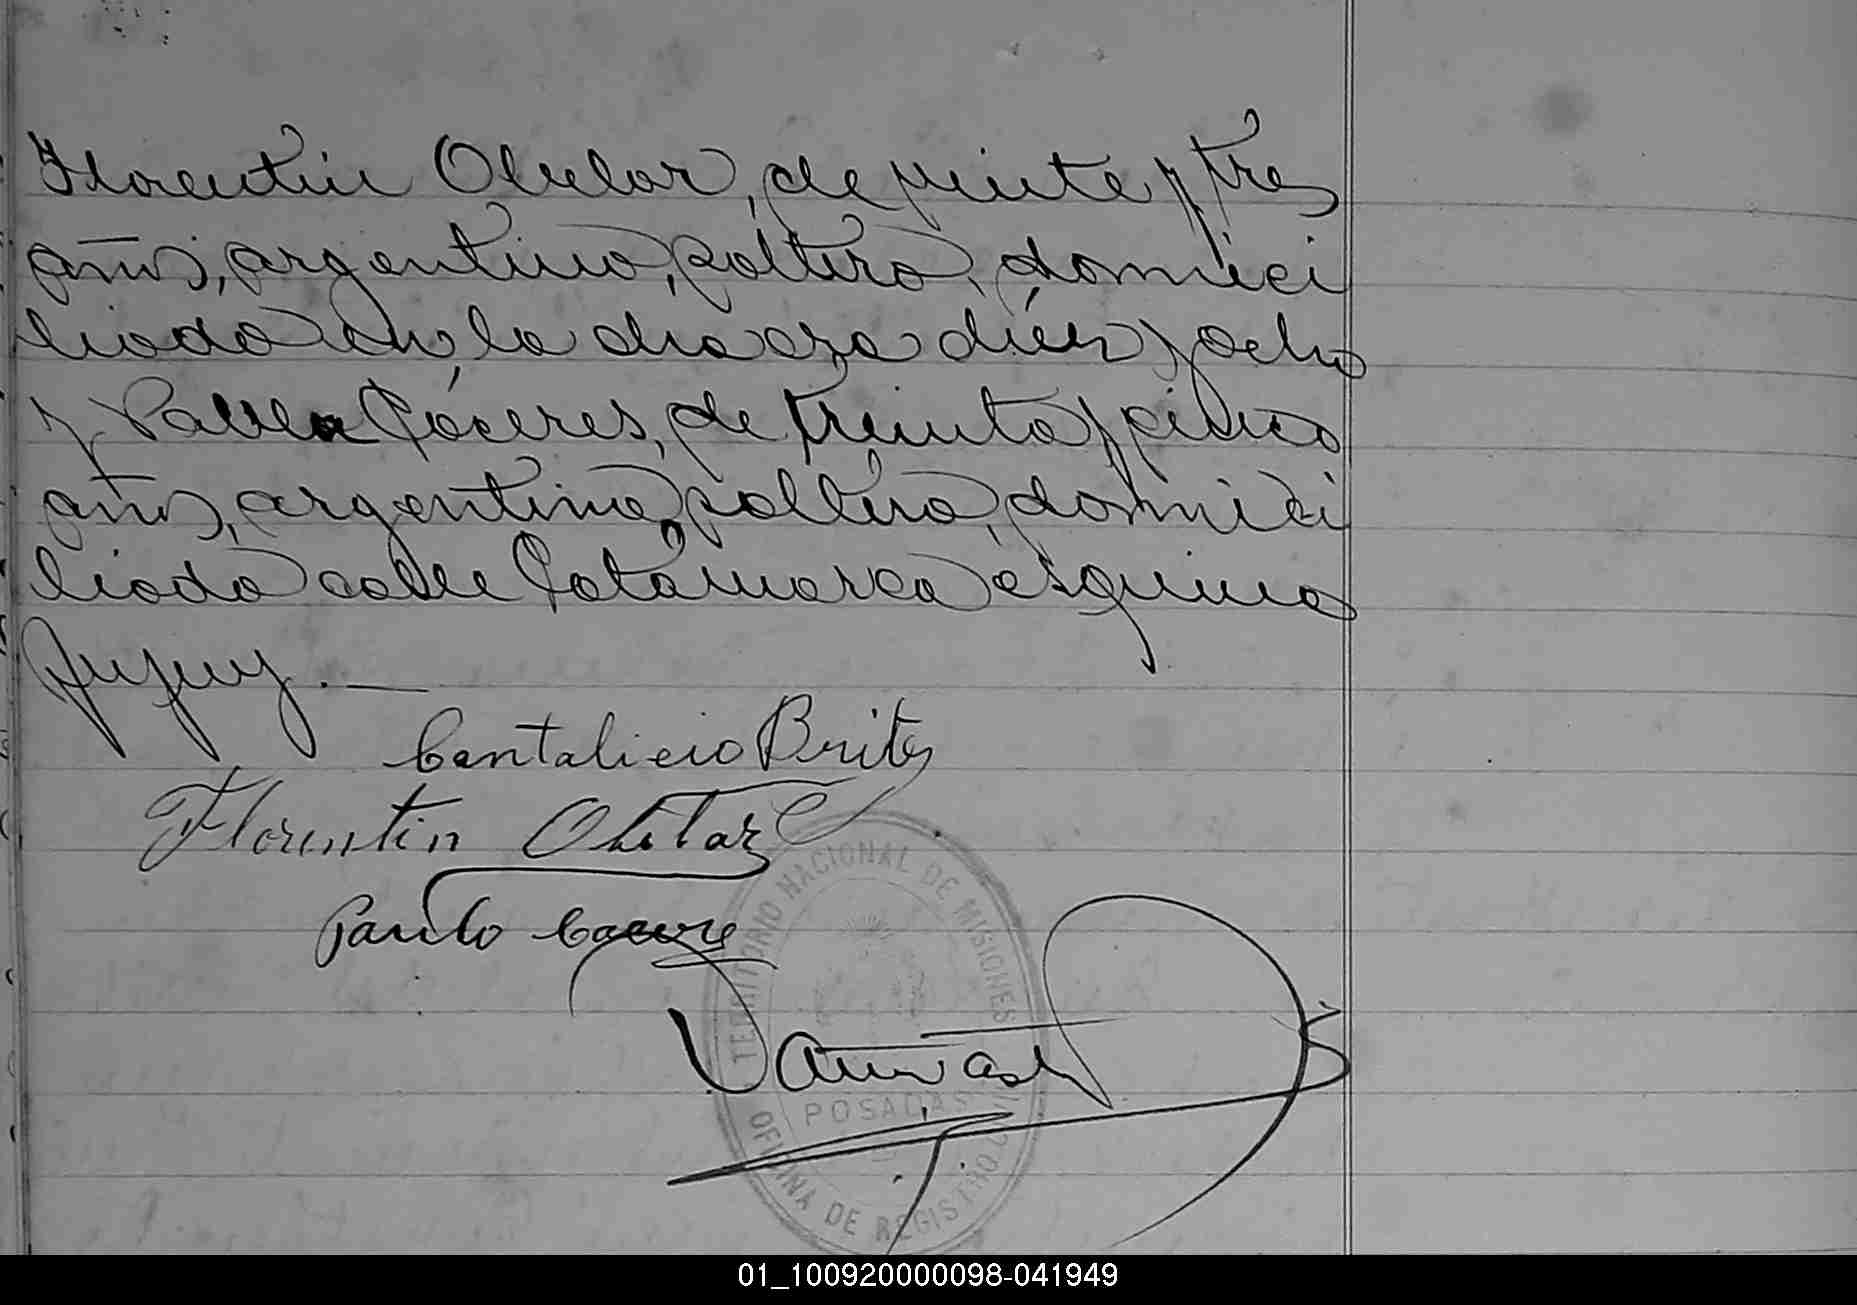 Florentin Obelar, de veinte y tres
años, argentino, soltero, domici
liado en la chacra diez y ocho
y Pablo Cáceres, de treinta y cinco
años, argentino, soltero, domici
liado calle Catamarca esquina
Jujuy.—
Cantalicio Britez
Florentin
Pablo Cacere
TERRITORIO NACIONAL DE MISIONES
POSADAS
OFICINA DE REGISTRO CIVIL
01_100920000098-041949